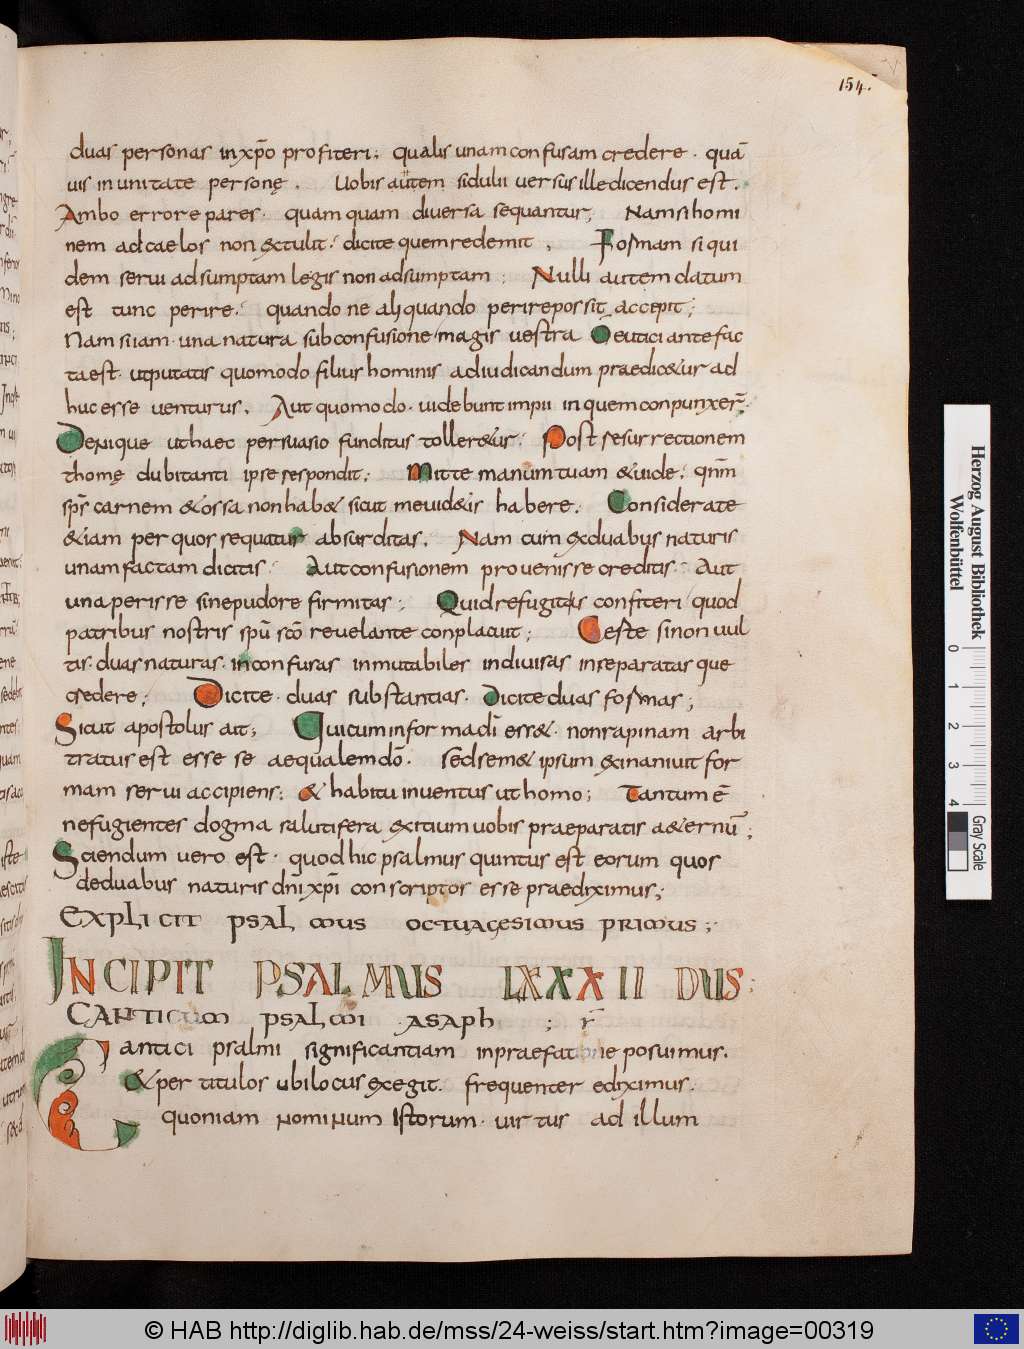 154.
duas personas inxp̄o profiteri; qualis unam confusam credere · quā
uis in unitate personę . Uobis autem sidulii uersus ille dicendus est .
Ambo errore pares · quam quam diuersa sequantur; Nam si homi
nem ad caelos non &tulit · dicite quem redemit , Formam si qui
dem serui adsumptam legis non adsumptam ; Nulli autem datum
est tunc perire · quando ne aliquando perire possit accepit ;
Nam si iam · una natura sub confusione magis uestra Deutici ante fac
ta est · ut putatis quomodo filius hominis ad iudicandum praedic&ur ad
huc esse uenturus . Aut quomodo · uidebunt impii in quem conpunxer̄ .
Denique ut haec persuasio funditus toller&ur · Post resurrectionem
thomę dubitanti ipse respondit ; Mitte manum tuam & uide · qnm̄
sps̄ carnem & ossa non hab& sicut me uid&is habere . Considerate
& iam per quos sequatur absurditas . Nam cum ex duabus naturis
unam factam dicitis · Aut confusionem prouenisse creditis · Aut
una perisse sine pudore firmitas ; Quid refugitis confiteri quod
patribus nostris spū scō reuelante conplacuit ; Certe si non uul
tis · duas naturas · inconfusas inmutabiles indiuisas inseparatasque
credere ; Dicite · duas substantias · Dicite duas formas ;
Sicut apostolus ait ; Qui cum in forma dī ess& · non rapinam arbi
tratus est esse se aequalem dō . Sed sem& ipsum exinaniuit for
mam serui accipiens : & habitu inuentus ut homo ; Tantum ē
ne fugientes dogma salutifera exitium uobis praeparatis a&ernū ;
Sciendum uero est · quod hic psalmus quintus est eorum quos
de duabus naturis dn̄i xp̄i conscriptos esse praediximus ;
EXPLICIT PSALMUS OCTUAGESIMUS PRIMUS ;
INCIPIT PSALMUS LXXXII DUS ;
CANTICUM PSALMI · ASAPH ; r̄
Cantici psalmi significantiam in praefatione posuimus .
& per titulos ubi locus exegit · frequenter ediximus .
quoniam nominum istorum · uirtus ad illum
Herzog August Bibliothek
Wolfenbüttel
0 1 2 3 4
Gray Scale
© HAB http://diglib.hab.de/mss/24-weiss/start.htm?image=00319